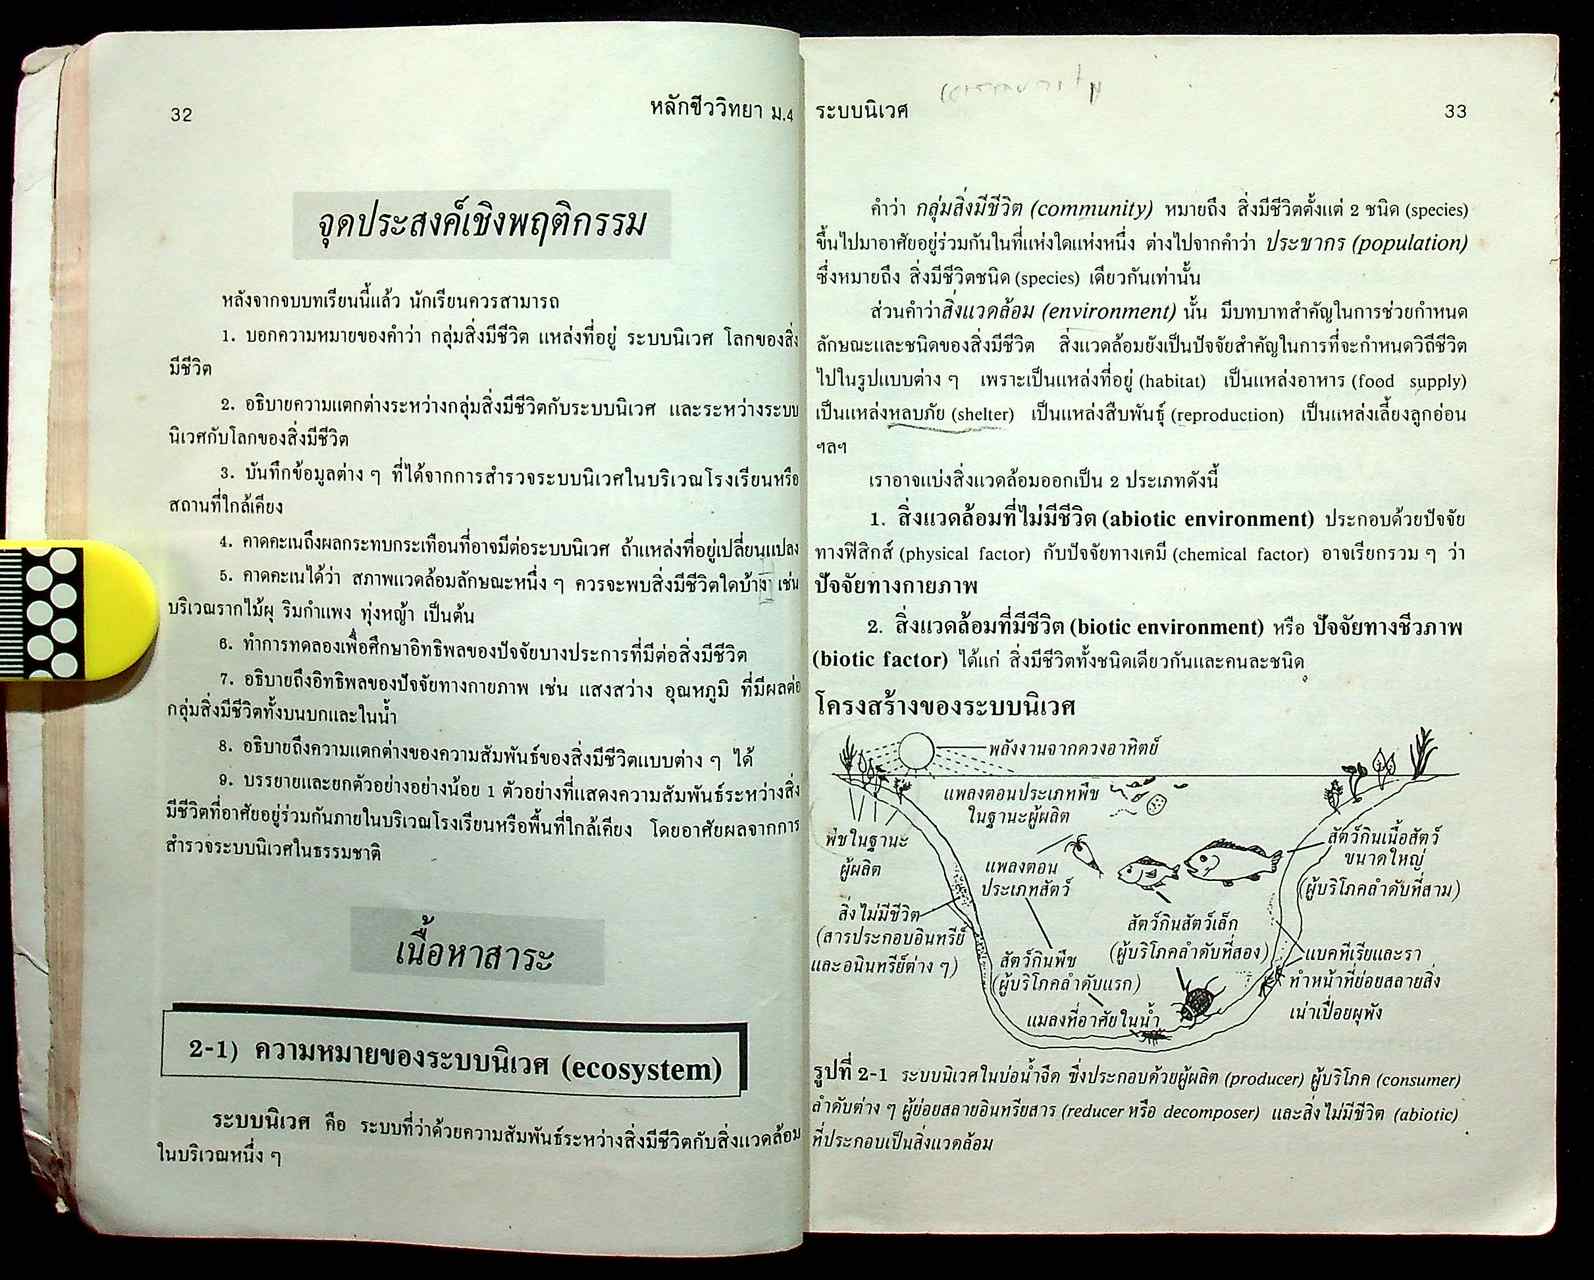 32
หลักชีววิทยา ม.4
จุดประสงค์เชิงพฤติกรรม
หลังจากจบบทเรียนนี้แล้ว นักเรียนควรสามารถ
1. บอกความหมายของคำว่า กลุ่มสิ่งมีชีวิต แหล่งที่อยู่ ระบบนิเวศ โลกของสิ่ง
มีชีวิต
2. อธิบายความแตกต่างระหว่างกลุ่มสิ่งมีชีวิตกับระบบนิเวศ และระหว่างระบบ
นิเวศกับโลกของสิ่งมีชีวิต
3. บันทึกข้อมูลต่าง ๆ ที่ได้จากการสำรวจระบบนิเวศในบริเวณโรงเรียนหรือ
สถานที่ใกล้เคียง
4. คาดคะเนถึงผลกระทบกระเทือนที่อาจมีต่อระบบนิเวศ ถ้าแหล่งที่อยู่เปลี่ยนแปลง
5. คาดคะเนได้ว่า สภาพแวดล้อมลักษณะหนึ่ง ๆ ควรจะพบสิ่งมีชีวิตใดบ้าง เช่น
บริเวณรากไม้ผุ ริมกำแพง ทุ่งหญ้า เป็นต้น
6. ทำการทดลองเพื่อศึกษาอิทธิพลของปัจจัยบางประการที่มีต่อสิ่งมีชีวิต
7. อธิบายถึงอิทธิพลของปัจจัยทางกายภาพ เช่น แสงสว่าง อุณหภูมิ ที่มีผลต่อ
กลุ่มสิ่งมีชีวิตทั้งบนบกและในน้ำ
8. อธิบายถึงความแตกต่างของความสัมพันธ์ของสิ่งมีชีวิตแบบต่าง ๆ ได้
9. บรรยายและยกตัวอย่างอย่างน้อย 1 ตัวอย่างที่แสดงความสัมพันธ์ระหว่างสิ่ง
มีชีวิตที่อาศัยอยู่ร่วมกันภายในบริเวณโรงเรียนหรือพื้นที่ใกล้เคียง โดยอาศัยผลจากการ
สำรวจระบบนิเวศในธรรมชาติ
เนื้อหาสาระ
2-1) ความหมายของระบบนิเวศ (ecosystem)
ระบบนิเวศ คือ ระบบที่ว่าด้วยความสัมพันธ์ระหว่างสิ่งมีชีวิตกับสิ่งแวดล้อม
ในบริเวณหนึ่ง ๆ
community
ระบบนิเวศ
33
คำว่า กลุ่มสิ่งมีชีวิต (community) หมายถึง สิ่งมีชีวิตตั้งแต่ 2 ชนิด (species)
ขึ้นไปมาอาศัยอยู่ร่วมกันในที่แห่งใดแห่งหนึ่ง ต่างไปจากคำว่า ประชากร (population)
ซึ่งหมายถึง สิ่งมีชีวิตชนิด (species) เดียวกันเท่านั้น
ส่วนคำว่าสิ่งแวดล้อม (environment) นั้น มีบทบาทสำคัญในการช่วยกำหนด
ลักษณะและชนิดของสิ่งมีชีวิต สิ่งแวดล้อมยังเป็นปัจจัยสำคัญในการที่จะกำหนดวิถีชีวิต
ไปในรูปแบบต่าง ๆ เพราะเป็นแหล่งที่อยู่ (habitat) เป็นแหล่งอาหาร (food supply)
เป็นแหล่งหลบภัย (shelter) เป็นแหล่งสืบพันธุ์ (reproduction) เป็นแหล่งเลี้ยงลูกอ่อน
ฯลฯ
เราอาจแบ่งสิ่งแวดล้อมออกเป็น 2 ประเภทดังนี้
1. สิ่งแวดล้อมที่ไม่มีชีวิต (abiotic environment) ประกอบด้วยปัจจัย
ทางฟิสิกส์ (physical factor) กับปัจจัยทางเคมี (chemical factor) อาจเรียกรวม ๆ ว่า
ปัจจัยทางกายภาพ
2. สิ่งแวดล้อมที่มีชีวิต (biotic environment) หรือ ปัจจัยทางชีวภาพ
(biotic factor) ได้แก่ สิ่งมีชีวิตทั้งชนิดเดียวกันและคนละชนิด
โครงสร้างของระบบนิเวศ
พลังงานจากดวงอาทิตย์
แพลงตอนประเภทพืช
ในฐานะผู้ผลิต
พืชในฐานะ
ผู้ผลิต
แพลงตอน
ประเภทสัตว์
สัตว์กินเนื้อสัตว์
ขนาดใหญ่
(ผู้บริโภคลำดับที่สาม)
สิ่งไม่มีชีวิต
(สารประกอบอินทรีย์
และอนินทรีย์ต่าง ๆ)
สัตว์กินสัตว์เล็ก
(ผู้บริโภคลำดับที่สอง)
สัตว์กินพืช
(ผู้บริโภคลำดับแรก)
แมลงที่อาศัยในน้ำ
แบคทีเรียและรา
ทำหน้าที่ย่อยสลายสิ่ง
เน่าเปื่อยผุพัง
รูปที่ 2-1 ระบบนิเวศในบ่อน้ำจืด ซึ่งประกอบด้วยผู้ผลิต (producer) ผู้บริโภค (consumer)
ลำดับต่าง ๆ ผู้ย่อยสลายอินทรียสาร (reducer หรือ decomposer) และสิ่งไม่มีชีวิต (abiotic)
ที่ประกอบเป็นสิ่งแวดล้อม